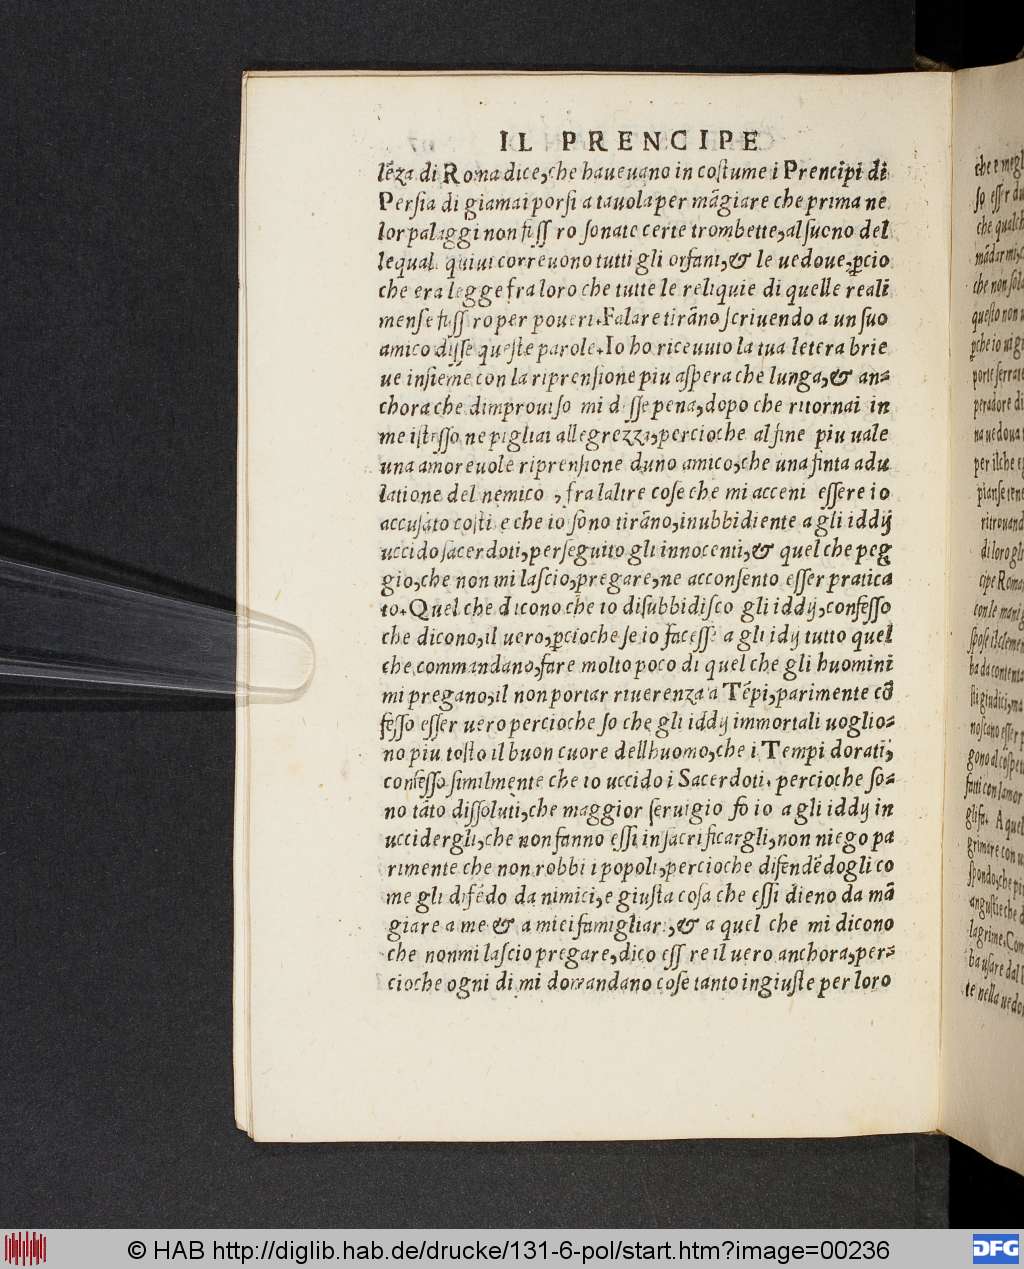 IL PRENCIPE
lẽza di Roma dice, che haueuano in coſtume i Prencipi di
Perſia di giamai porſi a tauola per mãgiare che prima ne
lor palaggi non fuſſ ro ſonate certe trombette, al ſuono del
lequal quiui correuono tutti gli orfani, & le uedoue, ꝑcio
che era legge fra loro che tutte le reliquie di quelle reali
menſe fuſſ ro per poueri. Falare tirãno ſcriuendo a un ſuo
amico diſſe queſte parole. Io ho riceuuto la tua letera brie
ue inſieme con la riprenſione piu aſpera che lunga, & an⸗
chora che dimprouiſo mi d ſſe pena, dopo che ritornai in
me iſteſſo ne pigliai allegrezza, percioche al fine piu uale
una amoreuole riprenſione duno amico, che una finta adu
latione del nemico , fra laltre coſe che mi acceni eſſere io
accuſato coſti e che io ſono tirãno, inubbidiente a gli iddij
uccido ſacerdoti, perſeguito gli innocenti, & quel che peg
gio, che non mi laſcio, pregare, ne acconſento eſſer pratica
to. Quel che dicono che io diſubbidiſco gli iddij, confeſſo
che dicono, il uero, ꝑcioche ſe io faceſſe a gli idij tutto quel
che commandano, fare molto poco di quel che gli huomini
mi pregano, il non portar riuerenza a Tẽpi, parimente cõ
feſſo eſſer uero percioche ſo che gli iddij immortali uoglio⸗
no piu toſto il buon cuore dellhuomo, che i Tempi dorati,
confeſſo ſimilmente che io uccido i Sacerdoti. percioche ſo⸗
no tãto diſſoluti, che maggior ſeruigio fo io a gli iddij in
uccidergli, che non fanno eſſi in ſacrificargli, non niego pa
rimente che non robbi i popoli, percioche difendẽdogli co
me gli difẽdo da nimici, e giuſta coſa che eſſi dieno da mã
giare a me & a miei famigliari, & a quel che mi dicono
che nonmi laſcio pregare, dico eſſ re il uero anchora, per⸗
cioche ogni di mi domandano coſe tanto ingiuſte per loro
che e megl
ſo eſſer du
che qualch
mãdarmi, c
che non ſola
queſto non u
ꝑche io ui gi
porte ſerrate
peradore di
na uedoua
per ilche e
pianſe tene
ritrouand
di loro gli
cipe Roma
con le mani
ſpoſe il clemen
ha da contenta
ſti giudici, ma
noſcano eſſer p
gono al coſpet
fatti con lamor
gliſa. A quel
grimare con u
ſpondo, che pi
anguſtie che d
lagrime. Com
ha uſare dal
te nella uedo
© HAB http://diglib.hab.de/drucke/131-6-pol/start.htm?image=00236
DFG